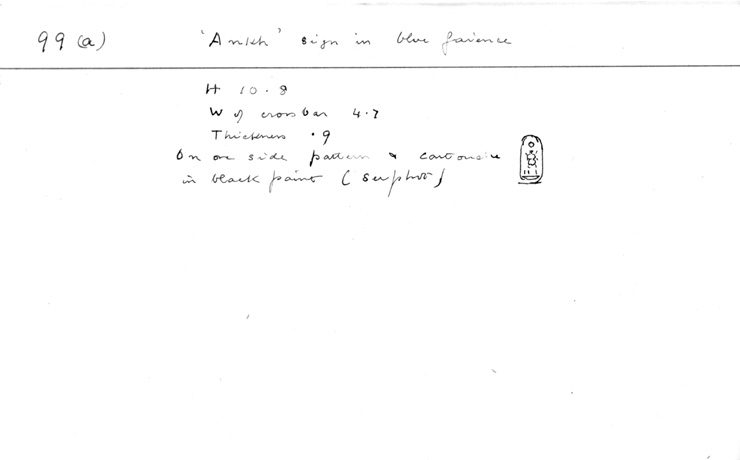 99 (a) 'Ankh' sign in blue faience
H 10.8
W of crossbar 4.7
Thickness .9
On one side pattern & cartouche
in black paint (see photo)